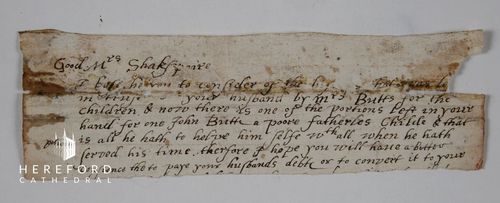 Good Mrs Shakspaire
in truse your husband by mrs Butts for the
Children & now there is one of the portions left in your
hand for one John Butts a poore fatherles Childe & that
is all he hath to helpe him selfe wth all when he hath
served his time therfore I hope you will have a better
to pay your husbands debts or to convert it to your
HEREFORD
CATHEDRAL